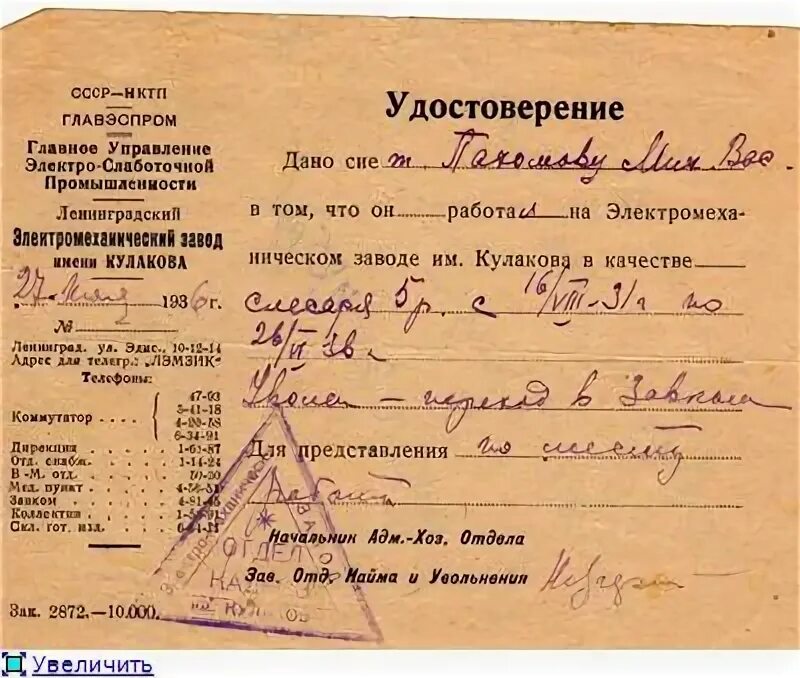 СССР—НКТП
ГЛАВЭСПРОМ
Главное Управление
Электро-Слаботочной
Промышленности
Ленинградский
Электромеханический завод
имени КУЛАКОВА
27 1936 г.
№
Ленинград, ул. Эдис., 10-12-14
Адрес для телегр.: „ЛЭМЗИК"
Телефоны:
47-03
Коммутатор 5-41-18
4-20-58
6-34-21
Дирекция 1-61-87
Отд. снабж. 1-14-24
В.-М. отд.
Мед. пункт
Завком
Коллектив
Скл. гот. изд.
Зак. 2872.—10.000.
Удостоверение
Дано сие т. Пахомову Мих Вас.
в том, что он работал на Электромеха-
ническом заводе им. Кулакова в качестве
слесаря 5 р. с 16/VIII-31 г по
26/ 36 г
Уволен — переход в Завком
Для представления по месту
работы
Начальник Адм.-Хоз. Отдела
Зав. Отд. Найма и Увольнения
ОТДЕЛ
Увеличить